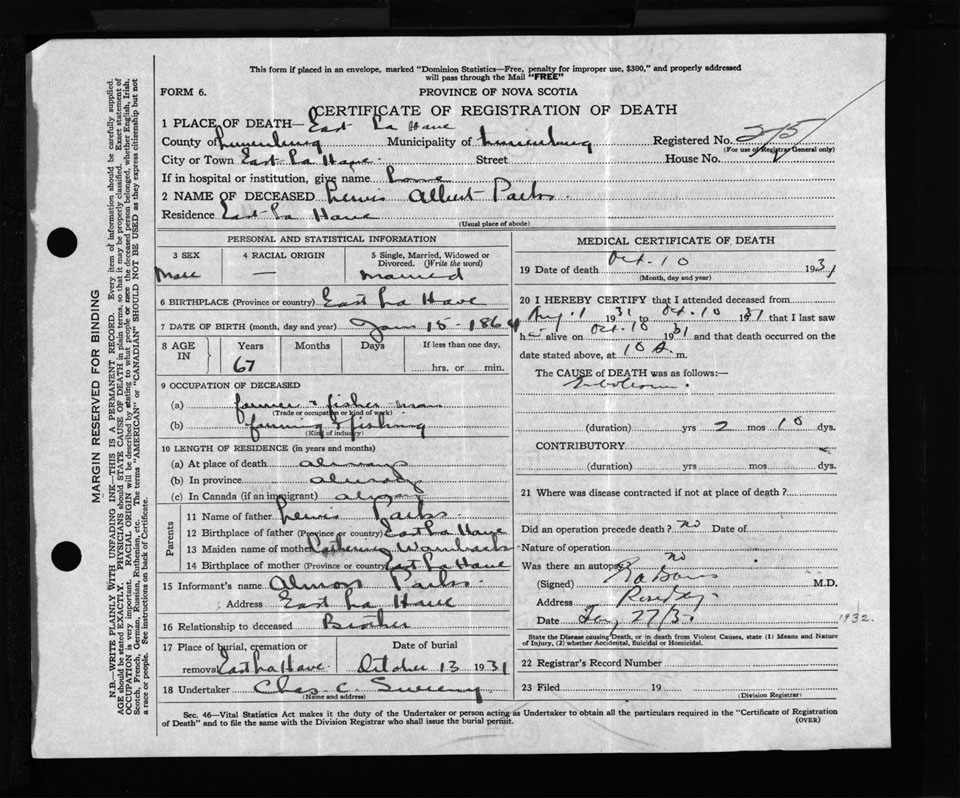 This form if placed in an envelope, marked "Dominion Statistics—Free, penalty for improper use, $300," and properly addressed
will pass through the Mail "FREE"
FORM 6.
PROVINCE OF NOVA SCOTIA
CERTIFICATE OF REGISTRATION OF DEATH
1 PLACE OF DEATH— East La Have
County of Lunenburg Municipality of Lunenburg Registered No.
(For use of Registrar General only)
City or Town East La Have Street House No.
If in hospital or institution, give name Home
2 NAME OF DECEASED Lewis Albert Parks
Residence East La Have
(Usual place of abode)
PERSONAL AND STATISTICAL INFORMATION
3 SEX 4 RACIAL ORIGIN 5 Single, Married, Widowed or
Divorced. (Write the word)
Male — Married
6 BIRTHPLACE (Province or country) East La Have
7 DATE OF BIRTH (month, day and year) Jan 15 - 1864
8 AGE IN Years Months Days If less than one day,
67 hrs. or min.
9 OCCUPATION OF DECEASED
(a) farmer & fisherman
(Trade or occupation or kind of work)
(b) farming & fishing
(Kind of industry)
10 LENGTH OF RESIDENCE (in years and months)
(a) At place of death always
(b) In province always
(c) In Canada (if an immigrant) always
Parents
11 Name of father Lewis Parks
12 Birthplace of father (Province or country) East La Have
13 Maiden name of mother Catherine Wambach
14 Birthplace of mother (Province or country) East La Have
15 Informant's name Almon Parks
Address East La Have
16 Relationship to deceased Brother
17 Place of burial, cremation or Date of burial
removal East La Have October 13 1931
18 Undertaker Chas C. Sweeny
(Name and address)
MEDICAL CERTIFICATE OF DEATH
19 Date of death Oct. 10 1931
(Month, day and year)
20 I HEREBY CERTIFY that I attended deceased from
Aug. 1 1931 to Oct. 10 1931 that I last saw
h alive on Oct. 10 1931 and that death occurred on the
date stated above, at 10 m.
The CAUSE of DEATH was as follows:—
Embolism.
(duration) yrs 2 mos 10 dys.
CONTRIBUTORY
(duration) yrs mos dys.
21 Where was disease contracted if not at place of death?
Did an operation precede death? no Date of
Nature of operation
Was there an autopsy? no
(Signed) M.D.
Address
Date 27/3 1932.
State the Disease causing Death, or in death from Violent Causes, state (1) Means and Nature
of Injury, (2) whether Accidental, Suicidal or Homicidal.
22 Registrar's Record Number
23 Filed 19
(Division Registrar)
Sec. 46—Vital Statistics Act makes it the duty of the Undertaker or person acting as Undertaker to obtain all the particulars required in the "Certificate of Registration
of Death" and to file the same with the Division Registrar who shall issue the burial permit.
(OVER)
MARGIN RESERVED FOR BINDING
N.B.—WRITE PLAINLY WITH UNFADING INK—THIS IS A PERMANENT RECORD. Every item of information should be carefully supplied.
AGE should be stated EXACTLY. PHYSICIANS should STATE CAUSE OF DEATH in plain terms, so that it may be properly classified. Exact statement of
OCCUPATION is very important. RACIAL ORIGIN will be described by stating to what people or race the deceased person belonged, whether English, Irish,
Scotch, French, German, Russian, Ruthenian, etc. The terms "AMERICAN" or "CANADIAN" SHOULD NOT BE USED as they express citizenship but not
a race or people. See instructions on back of Certificate.